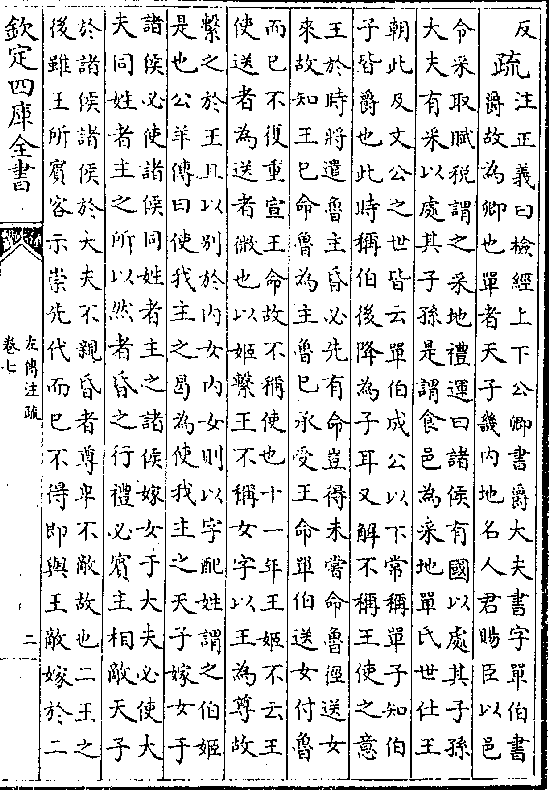 反
疏
注正義曰檢經上下公卿書爵大夫書字單伯書
爵故為卿也單者天子畿内地名人君賜臣以邑
令采取賦稅謂之采地禮運曰諸侯有國以處其子孫
大夫有采以處其子孫是謂食邑為采地單氏世仕王
朝此及文公之世皆云單伯成公以下常稱單子知伯
子皆爵也此時稱伯後降為子耳又解不稱王使之意
王於時將遣魯主昏必先有命豈得未嘗命魯徑送女
來故知王已命魯為主魯已承受王命單伯送女付魯
而已不復重宣王命故不稱使也十一年王姬不云王
使送者為送者微也以姬繫王不稱女字以王為尊故
繫之於王且以别於内女内女則以字配姓謂之伯姬
是也公羊傳曰使我主之曷為使我主之天子嫁女于
諸侯必使諸侯同姓者主之諸侯嫁女于大夫必使大
夫同姓者主之所以然者昏之行禮必賓主相敵天子
於諸侯諸侯於大夫不親昏者尊卑不敵故也二王之
後雖王所賓客示崇先代而已不得即與王敵嫁於二
欽定四庫全書
左傳注疏
卷七
二